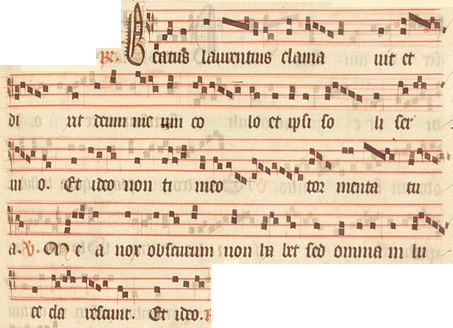 R. Beatus laurentius clama uit et
di xit deum me um co lo et ipsi so li ser
ui o. Et ideo non ti meo tor menta tu
a. V. Me a nox obscurum non ha bet sed omnia in lu
ce cla rescunt. Et ideo.